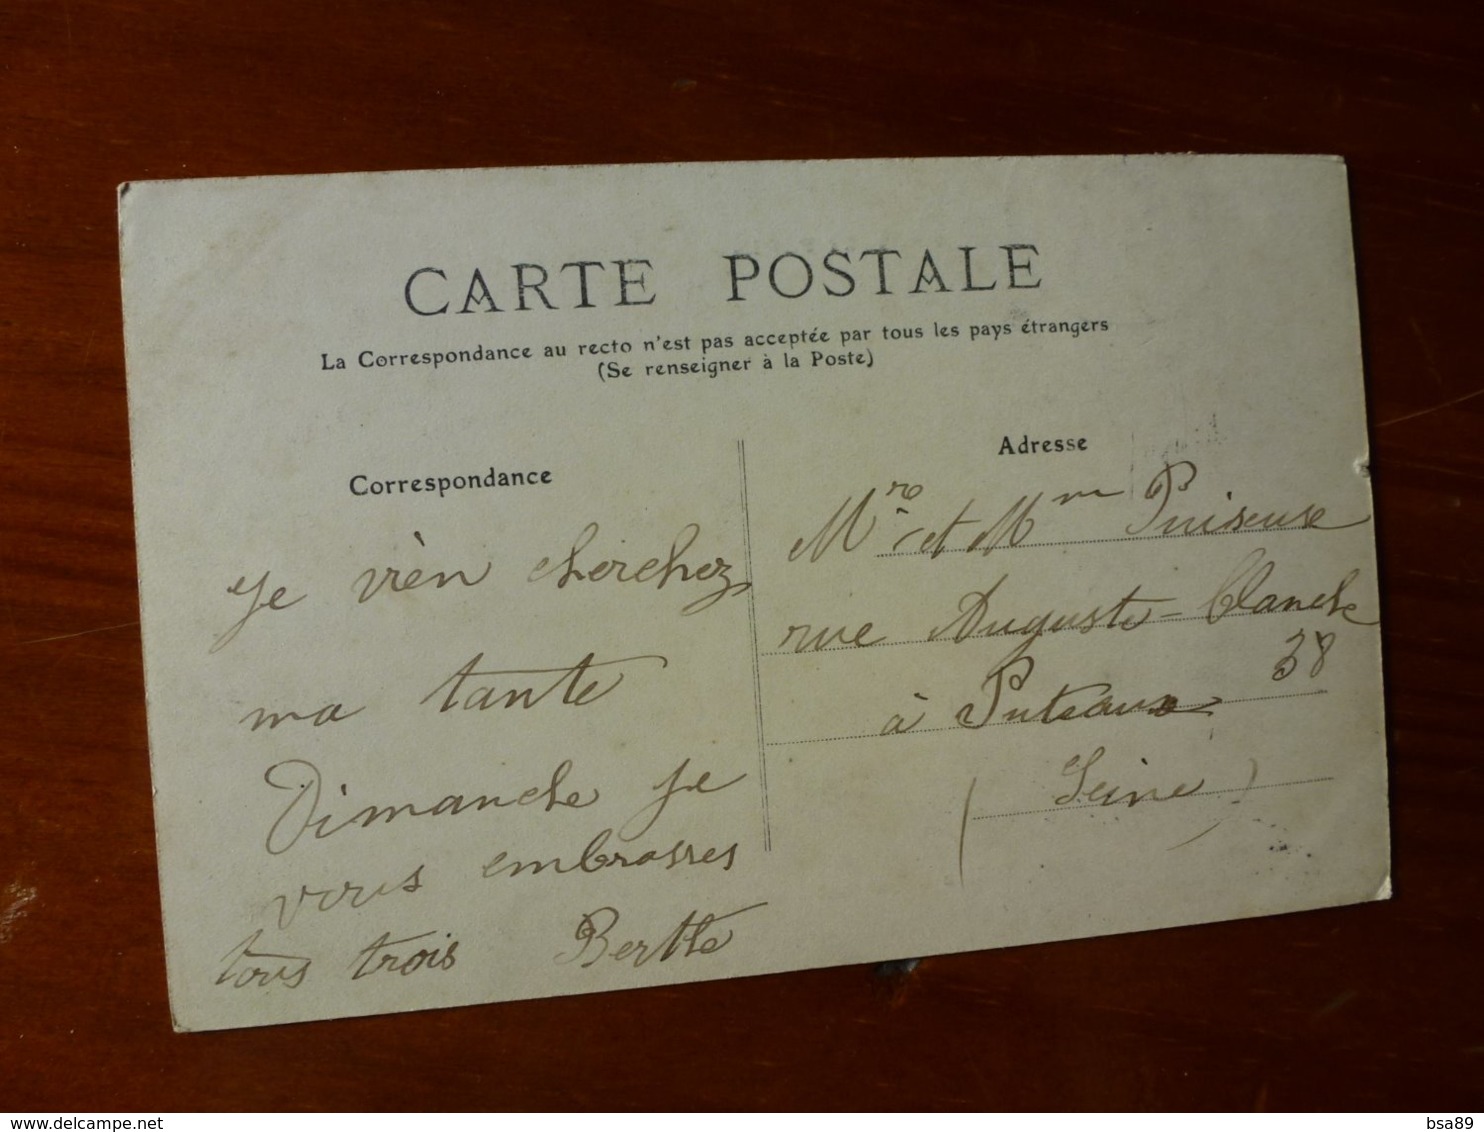 CARTE POSTALE
La Correspondance au recto n'est pas acceptée par tous les pays étrangers
(Se renseigner à la Poste)
Correspondance
Je vièn cherchez
ma tante
Dimanche je
vous embrasses
tous trois Berthe
Adresse
Mr et Mm Puiseuse
rue Auguste-blanche
38
à Puteaux
(Seine)
© delcampe.net
bsa89